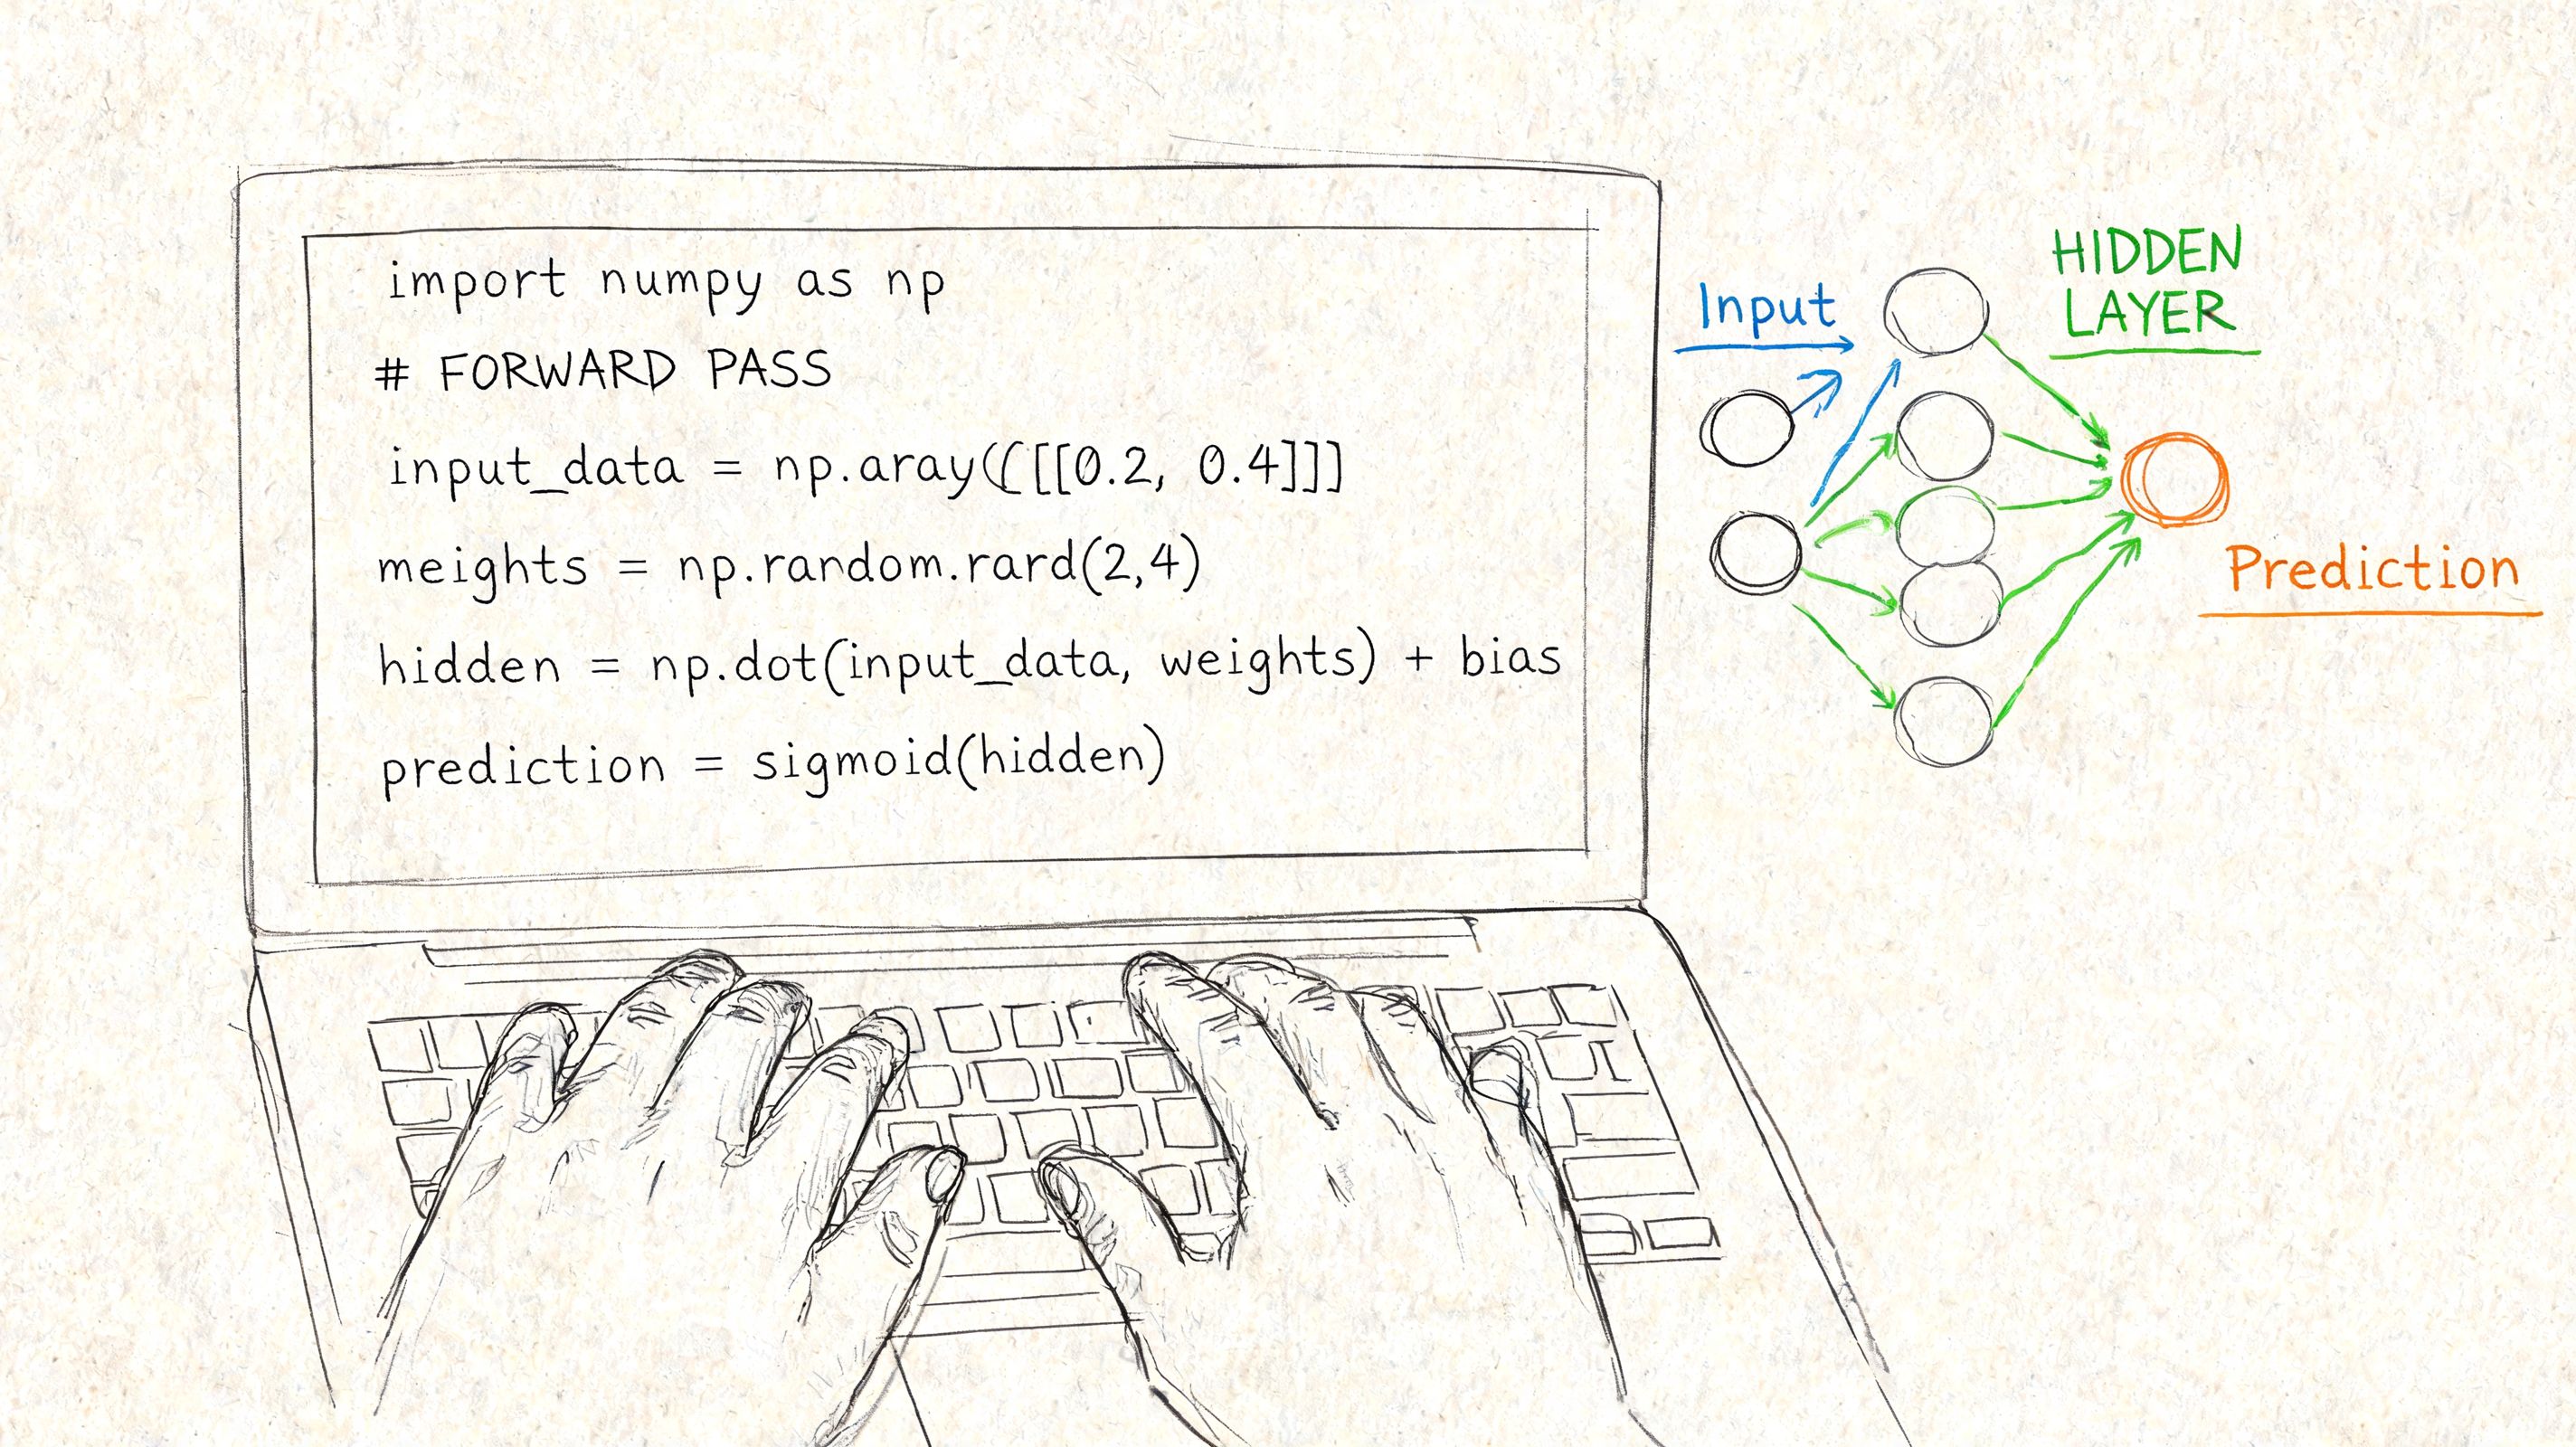 import numpy as np
# FORWARD PASS
input_data = np.aray(([[0.2, 0.4]]]
meights = np.random.rard(2,4)
hidden = np.dot(input_data, weights) + bias
prediction = sigmoid(hidden)
Input
HIDDEN
LAYER
Prediction